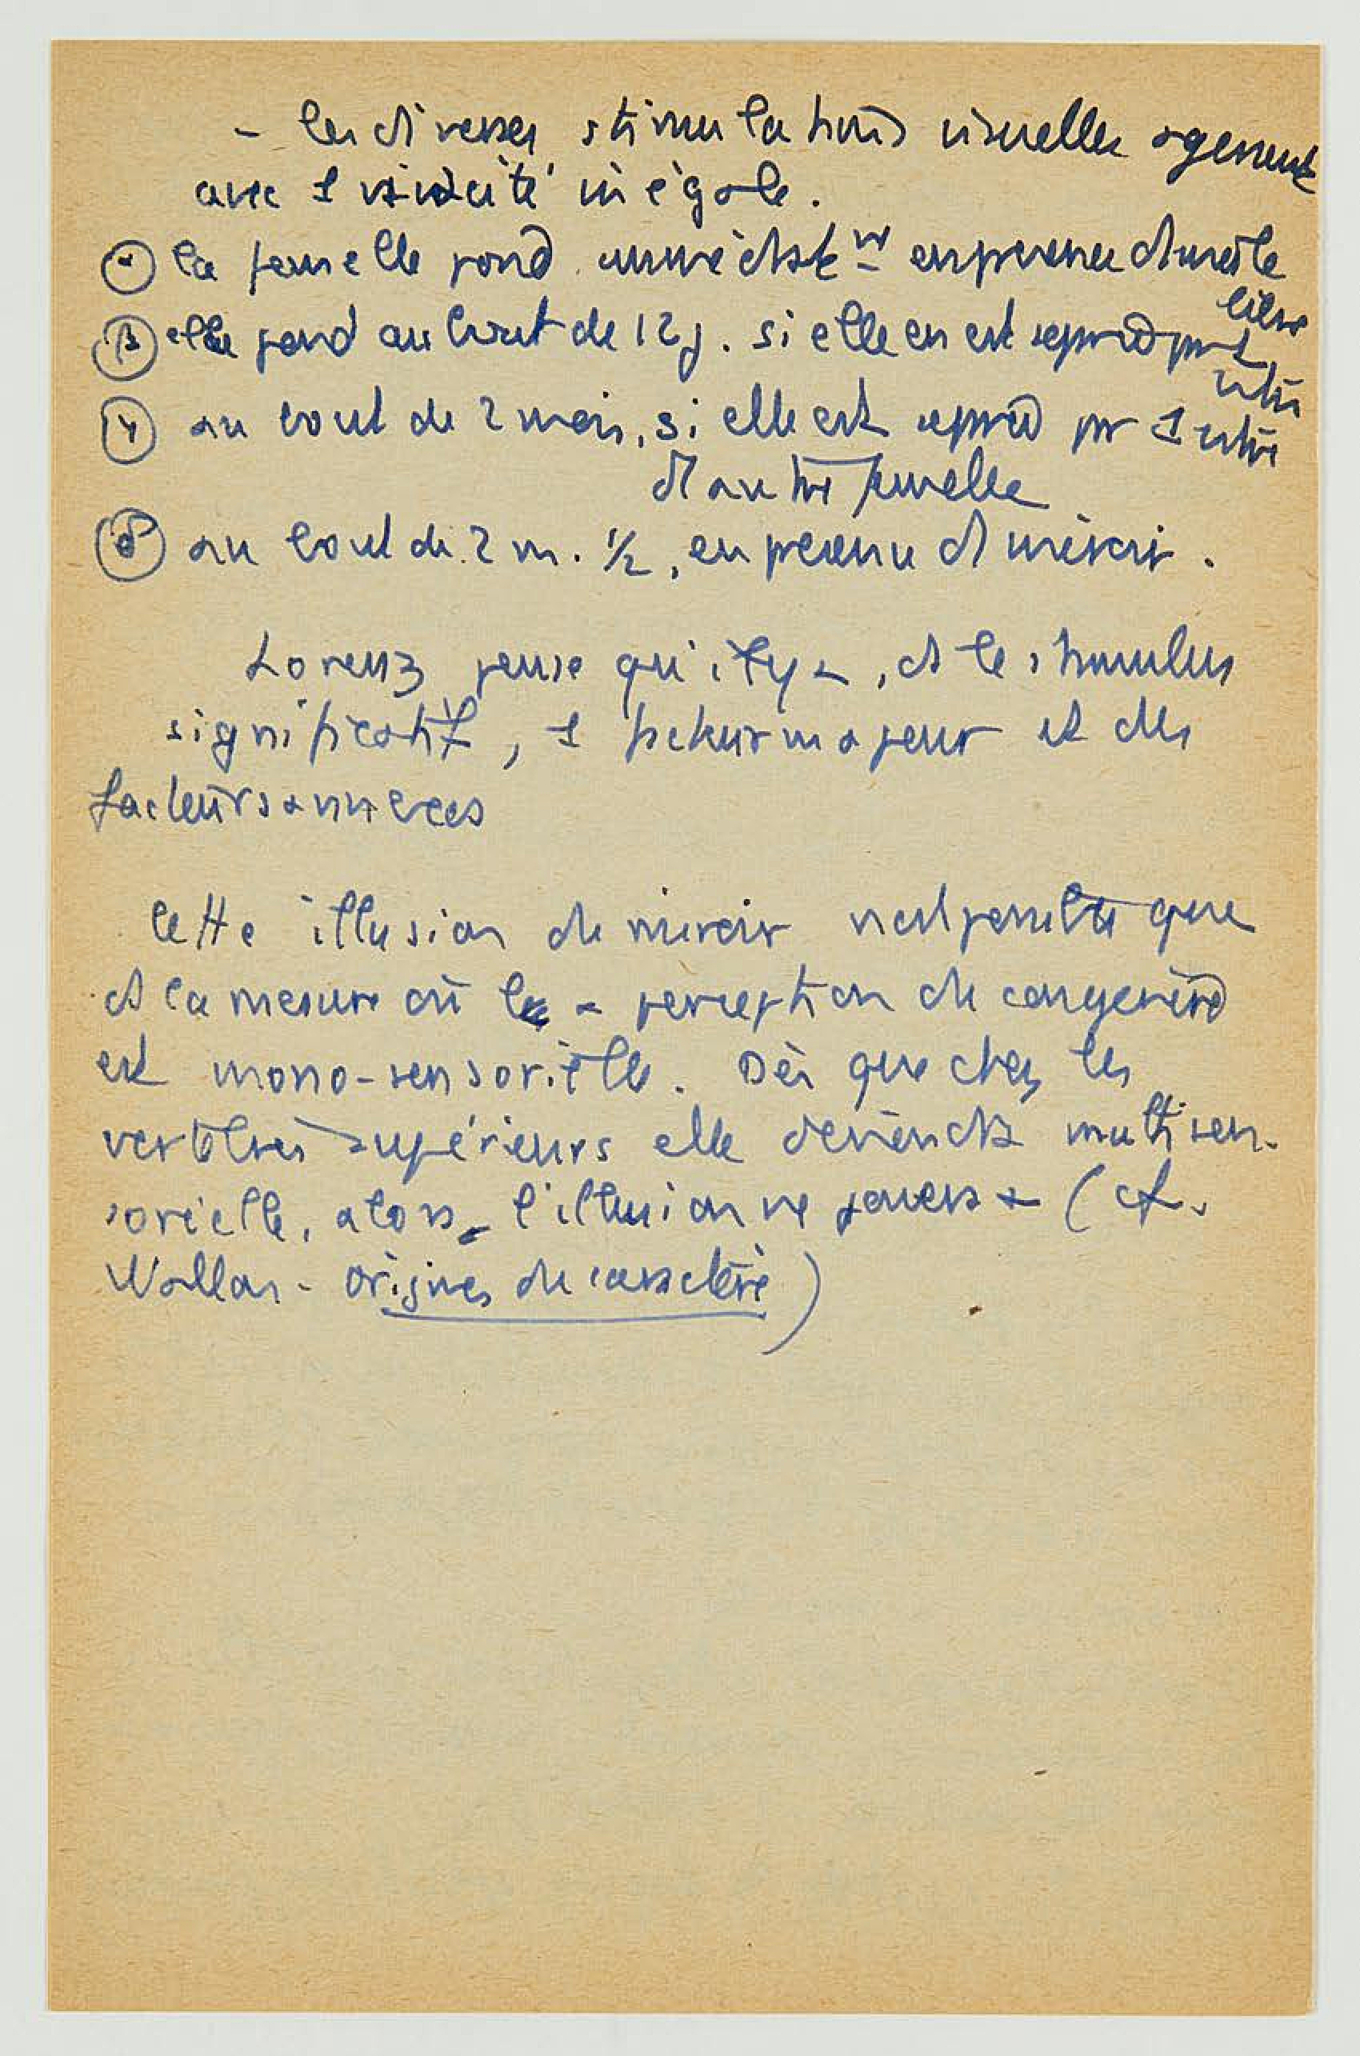 - les diverses stimulations visuelles agissent
avec 1 vivacité inégale.
α la femelle pond en présence d'1 mâle
libre
β elle pond au bout de 12 j. si elle en est séparée par 1
vitre
γ au bout de 2 mois, si elle est séparée par 1 vitre
d'1 autre femelle
δ au bout de 2 m. 1/2, en présence d'1 miroir.
Lorenz pense qu'il y a, ds le stimulus
significatif, 1 facteur majeur et des
facteurs annexes
Cette illusion du miroir n'est possible que
ds la mesure où la perception du congénère
est mono-sensorielle. Dès que chez les
vertébrés supérieurs elle deviendra multisen-
sorielle, alors l'illusion ne jouera + (cf.
Wallon - origines du caractère)